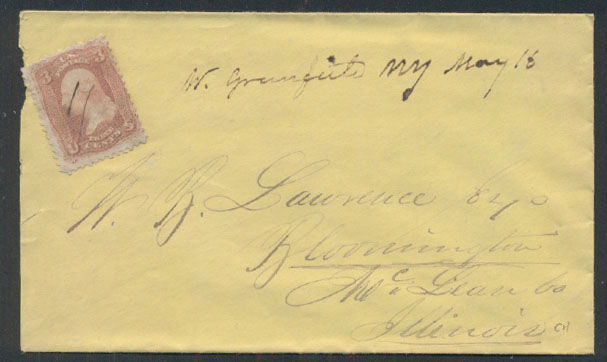 W. Greenfield NY May 18
3 U.S. 3
THREE
CENTS
W. B. Lawrence Esq
Bloomington
McLean Co
Illinois